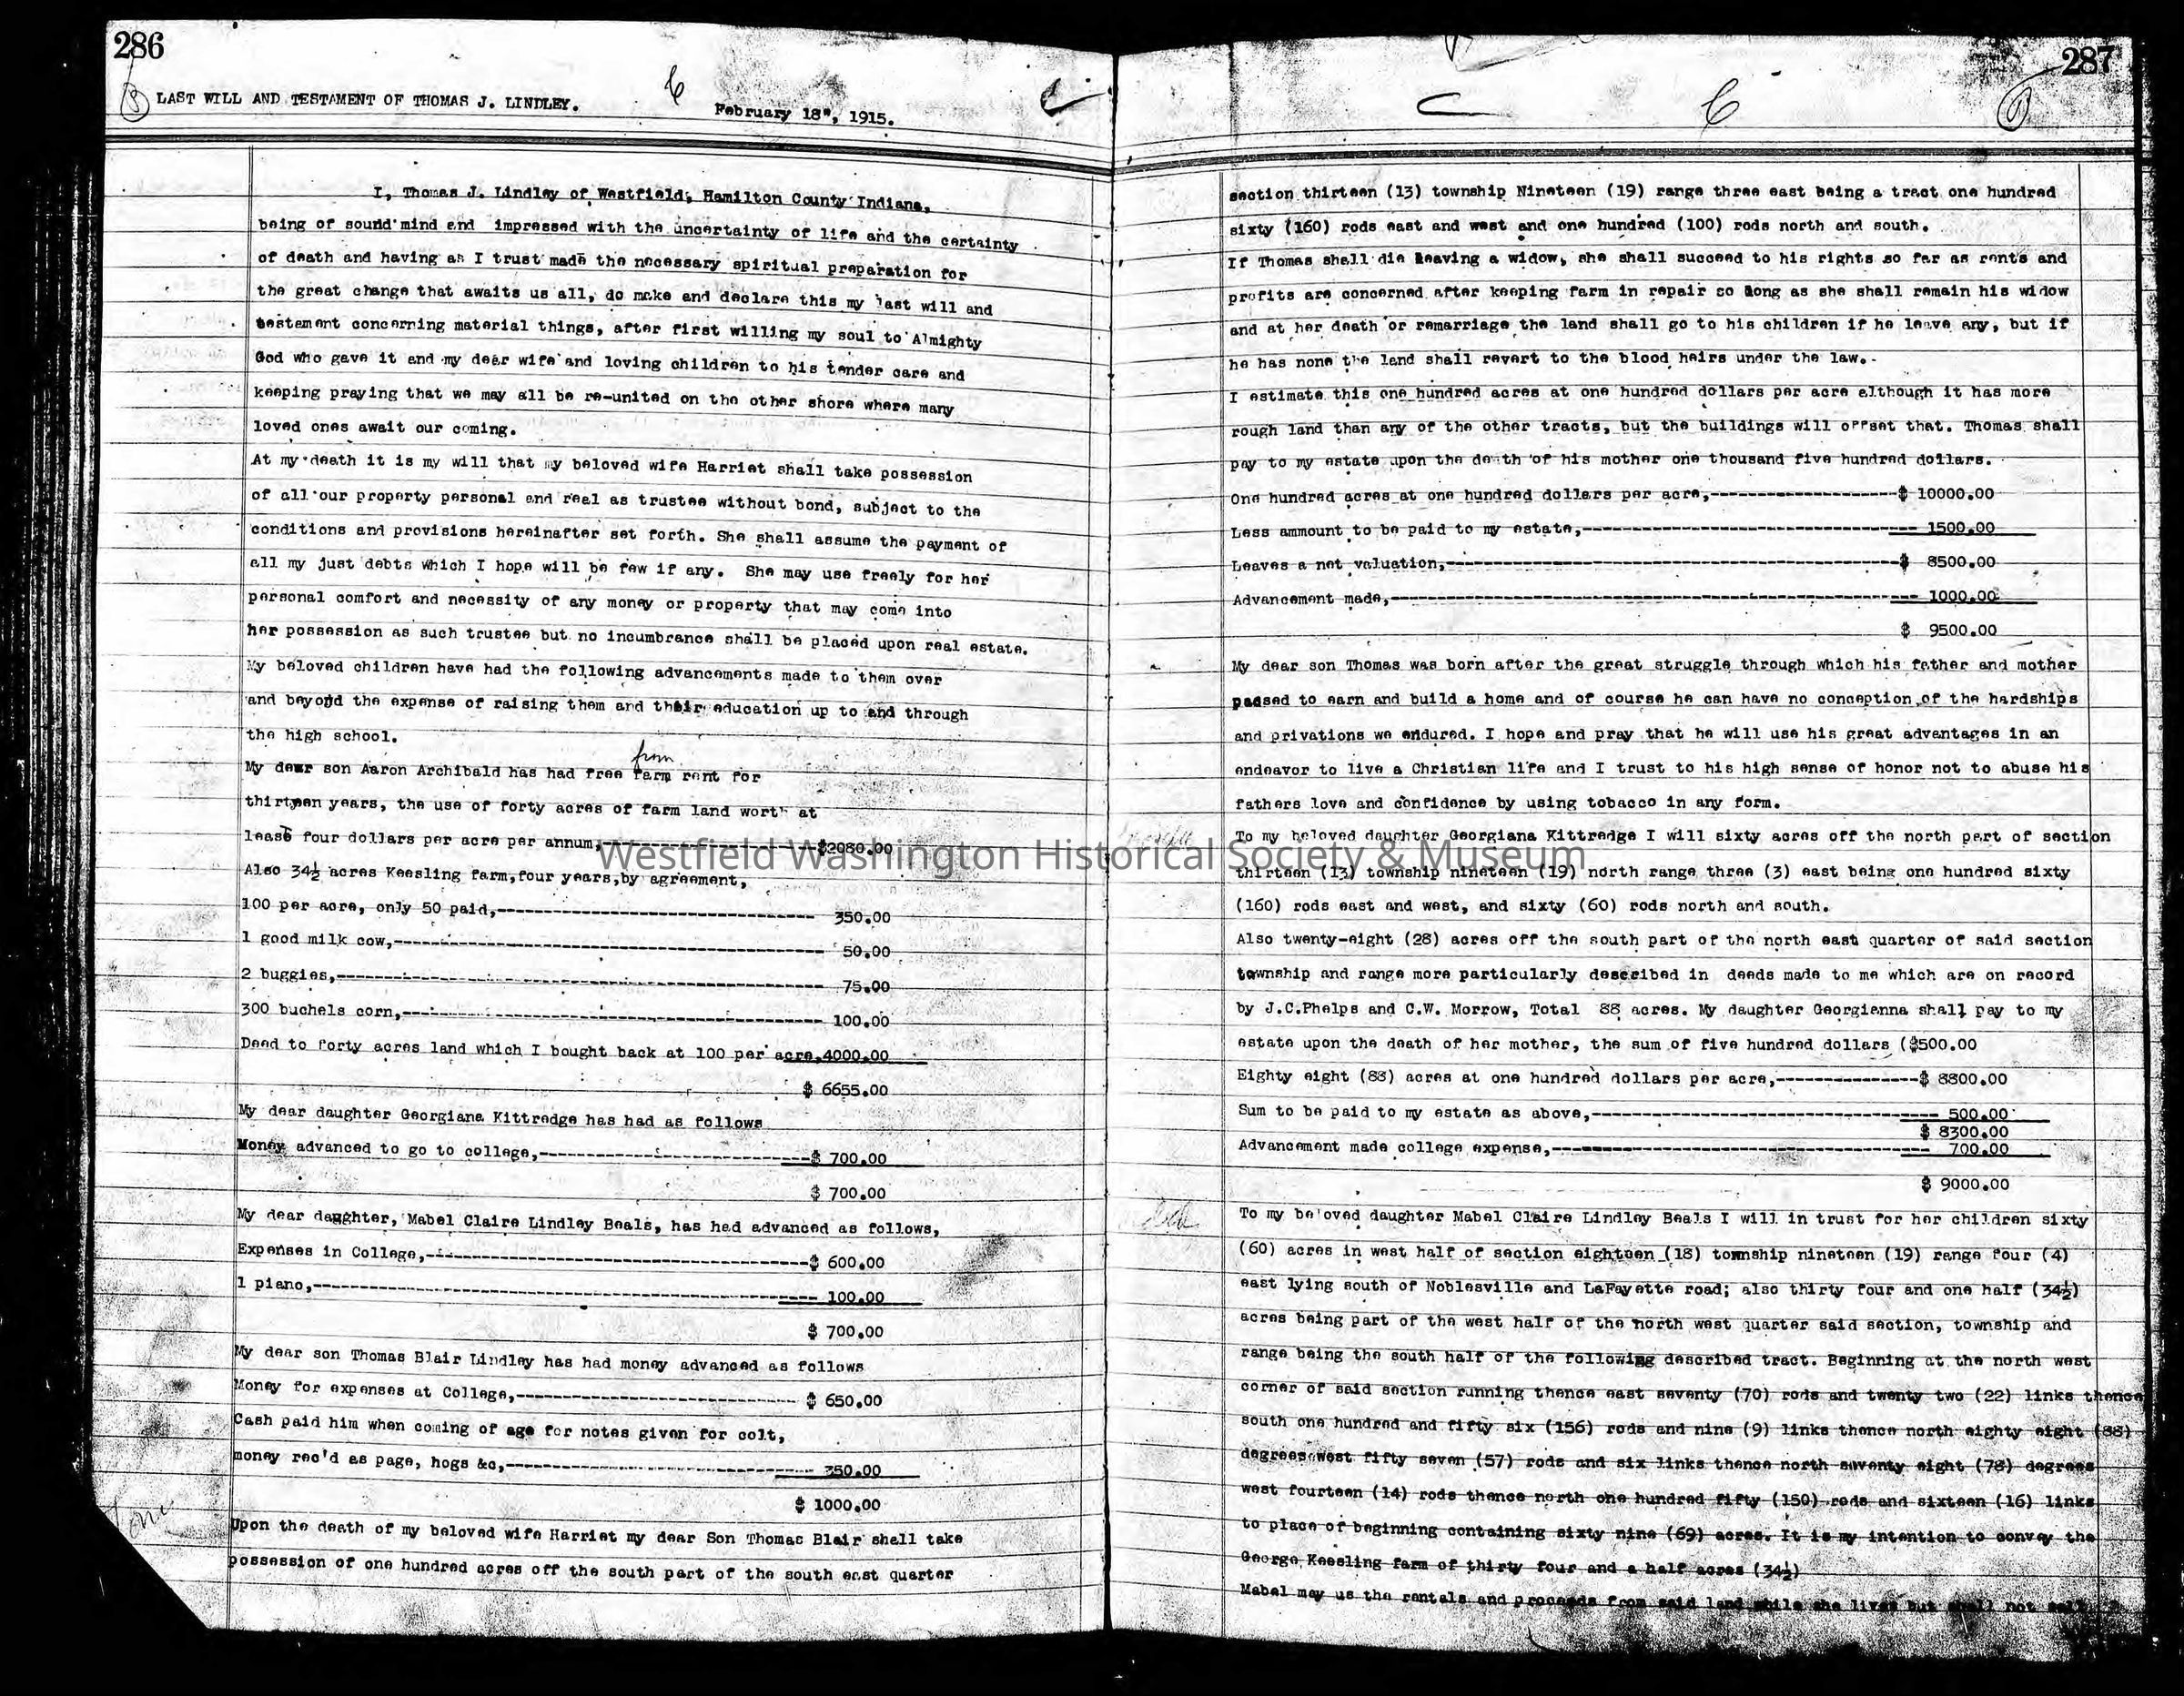 286
LAST WILL AND TESTAMENT OF THOMAS J. LINDLEY.
February 18", 1915.
I, Thomas J. Lindley of Westfield, Hamilton County Indiana,
being of sound mind and impressed with the uncertainty of life and the certainty
of death and having as I trust made the necessary spiritual preparation for
the great change that awaits us all, do make and declare this my last will and
testament concerning material things, after first willing my soul to Almighty
God who gave it and my dear wife and loving children to his tender care and
keeping praying that we may all be re-united on the other shore where many
loved ones await our coming.
At my death it is my will that my beloved wife Harriet shall take possession
of all our property personal and real as trustee without bond, subject to the
conditions and provisions hereinafter set forth. She shall assume the payment of
all my just debts which I hope will be few if any. She may use freely for her
personal comfort and necessity of any money or property that may come into
her possession as such trustee but no incumbrance shall be placed upon real estate.
My beloved children have had the following advancements made to them over
and beyond the expense of raising them and their education up to and through
the high school.
from
My dear son Aaron Archibald has had free farm rent for
thirteen years, the use of forty acres of farm land worth at
lease four dollars per acre per annum,--------------------$2080.00
Also 34½ acres Keesling farm,four years,by agreement,
100 per acre, only 50 paid,-------------------------------- 350.00
1 good milk cow,------------------------------------------- 50.00
2 buggies,------------------------------------------------- 75.00
300 buchels corn,------------------------------------------ 100.00
Deed to forty acres land which I bought back at 100 per acre,4000.00
$ 6655.00
My dear daughter Georgiana Kittredge has had as follows
Money advanced to go to college,---------------------------$ 700.00
$ 700.00
My dear daughter, Mabel Claire Lindley Beals, has had advanced as follows,
Expenses in College,--------------------------------------$ 600.00
1 piano,-------------------------------------------------- 100.00
$ 700.00
My dear son Thomas Blair Lindley has had money advanced as follows
Money for expenses at College,---------------------------- $ 650.00
Cash paid him when coming of age for notes given for colt,
money rec'd as page, hogs &c,------------------------------ 350.00
$ 1000.00
Upon the death of my beloved wife Harriet my dear Son Thomas Blair shall take
possession of one hundred acres off the south part of the south east quarter
287
section thirteen (13) township Nineteen (19) range three east being a tract one hundred
sixty (160) rods east and west and one hundred (100) rods north and south.
If Thomas shall die leaving a widow, she shall succeed to his rights so far as rents and
profits are concerned after keeping farm in repair so long as she shall remain his widow
and at her death or remarriage the land shall go to his children if he leave any, but if
he has none the land shall revert to the blood heirs under the law.
I estimate this one hundred acres at one hundred dollars per acre although it has more
rough land than any of the other tracts, but the buildings will offset that. Thomas shall
pay to my estate upon the death of his mother one thousand five hundred dollars.
One hundred acres at one hundred dollars per acre,--------------------$ 10000.00
Less ammount to be paid to my estate,---------------------------------- 1500.00
Leaves a net valuation,-----------------------------------------------$ 8500.00
Advancement made,------------------------------------------------------ 1000.00
$ 9500.00
My dear son Thomas was born after the great struggle through which his father and mother
passed to earn and build a home and of course he can have no conception of the hardships
and privations we endured. I hope and pray that he will use his great advantages in an
endeavor to live a Christian life and I trust to his high sense of honor not to abuse his
fathers love and confidence by using tobacco in any form.
To my beloved daughter Georgiana Kittredge I will sixty acres off the north part of section
Westfield Washington Historical Society & Museum
thirteen (13) township nineteen (19) north range three (3) east being one hundred sixty
(160) rods east and west, and sixty (60) rods north and south.
Also twenty-eight (28) acres off the south part of the north east quarter of said section
township and range more particularly described in deeds made to me which are on record
by J.C.Phelps and C.W. Morrow, Total 88 acres. My daughter Georgianna shall pay to my
estate upon the death of her mother, the sum of five hundred dollars ($500.00
Eighty eight (88) acres at one hundred dollars per acre,---------------$ 8800.00
Sum to be paid to my estate as above,----------------------------------- 500.00
$ 8300.00
Advancement made college expense,-------------------------------------- 700.00
$ 9000.00
To my beloved daughter Mabel Claire Lindley Beals I will in trust for her children sixty
(60) acres in west half of section eighteen (18) township nineteen (19) range four (4)
east lying south of Noblesville and LaFayette road; also thirty four and one half (34½)
acres being part of the west half of the north west quarter said section, township and
range being the south half of the following described tract. Beginning at the north west
corner of said section running thence east seventy (70) rods and twenty two (22) links thence
south one hundred and fifty six (156) rods and nine (9) links thence north eighty eight (88)
degrees west fifty seven (57) rods and six links thence north seventy eight (78) degrees
west fourteen (14) rods thence north one hundred fifty (150) rods and sixteen (16) links
to place of beginning containing sixty nine (69) acres. It is my intention to convey the
George Keesling farm of thirty four and a half acres (34½)
Mabel may us the rentals and proceeds from said land while she lives but shall not sell